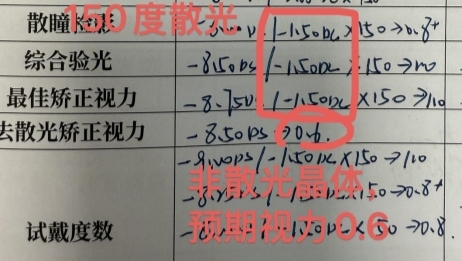 150度散光
散瞳检影
-1.50DC×150→0.8+
综合验光 -8.50DS/-1.50DC×150→1.0
最佳矫正视力 -8.75DS/-1.50DC×150→1.0
去散光矫正视力 -8.50DS→0.6.
-8.00DS/-1.50DC×150→1.0
非散光晶体,
-1.50DC×150→0.8+
预期视力0.6
试戴度数
×150→0.8